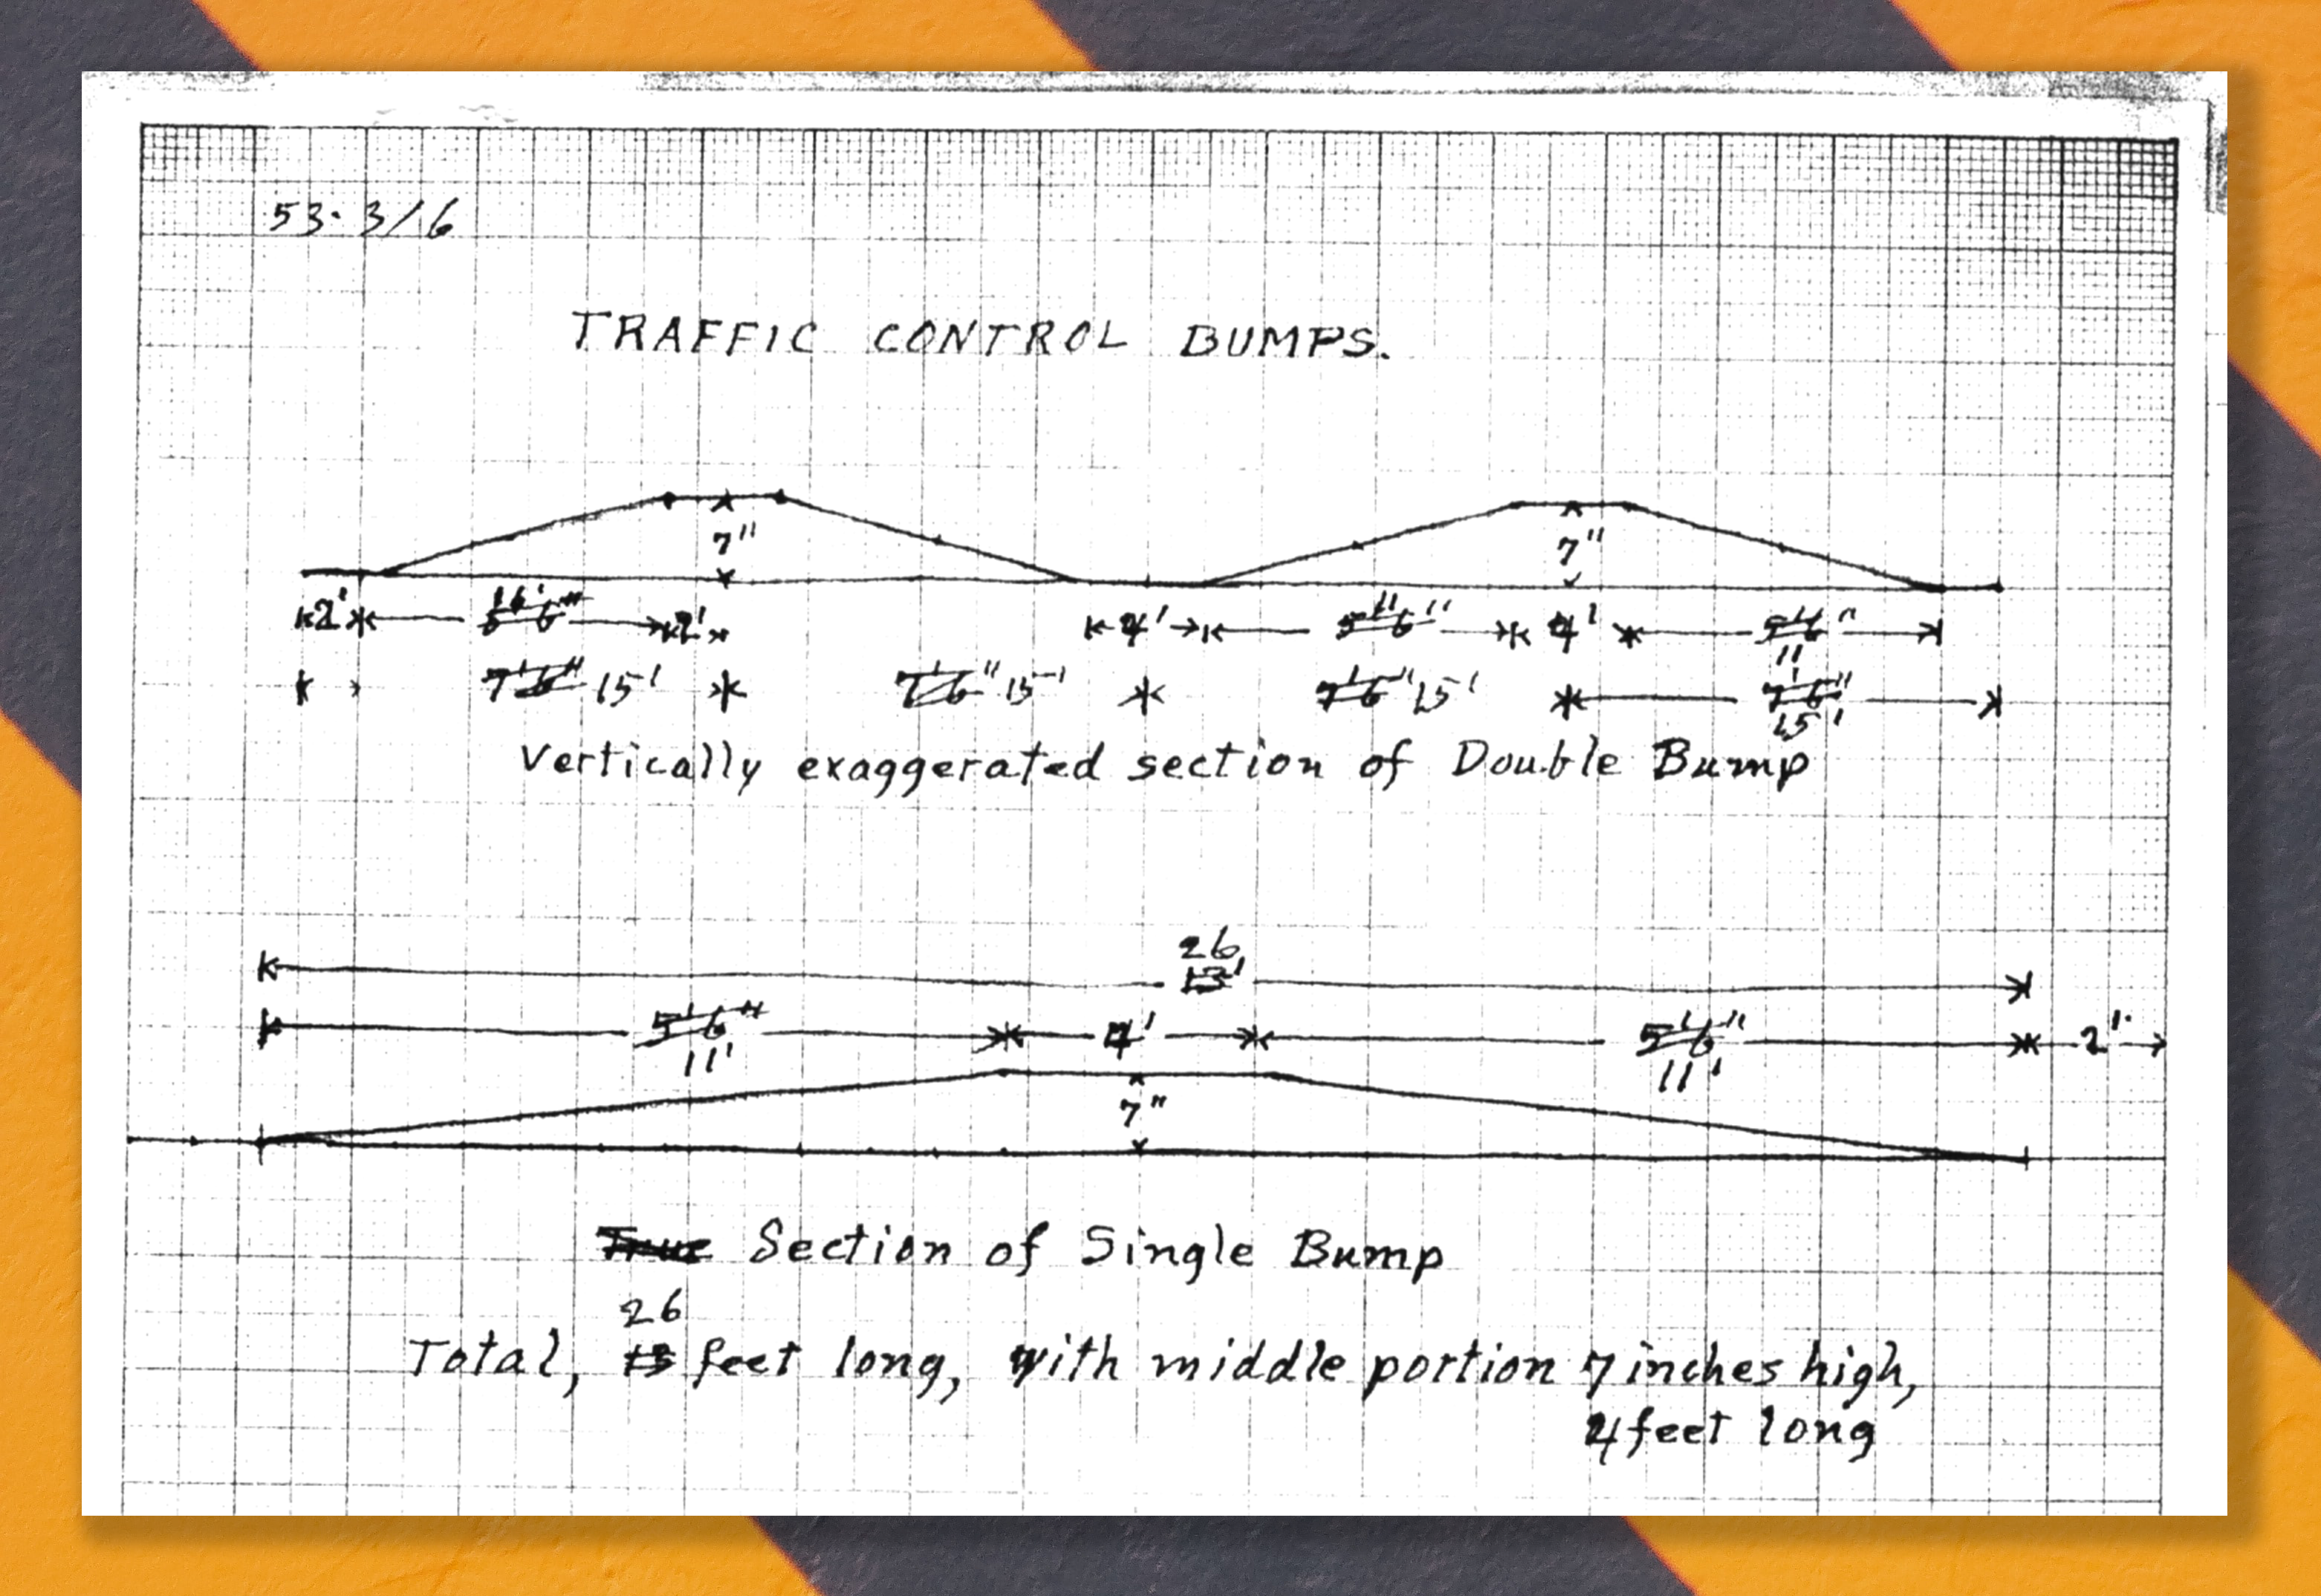 53. 3/6
TRAFFIC CONTROL BUMPS.
7" 7"
2' 5'6" 2' 4' 11 5'6" 4' 5'6"
11
7'6" 15' 7'6" 15' 7'6" 15' 7'6"
15'
Vertically exaggerated section of Double Bump
26
13'
5'6" 4' 5'6" 2'
11' 11'
7"
True Section of Single Bump
26
Total, 13 feet long, with middle portion 7 inches high,
4 feet long